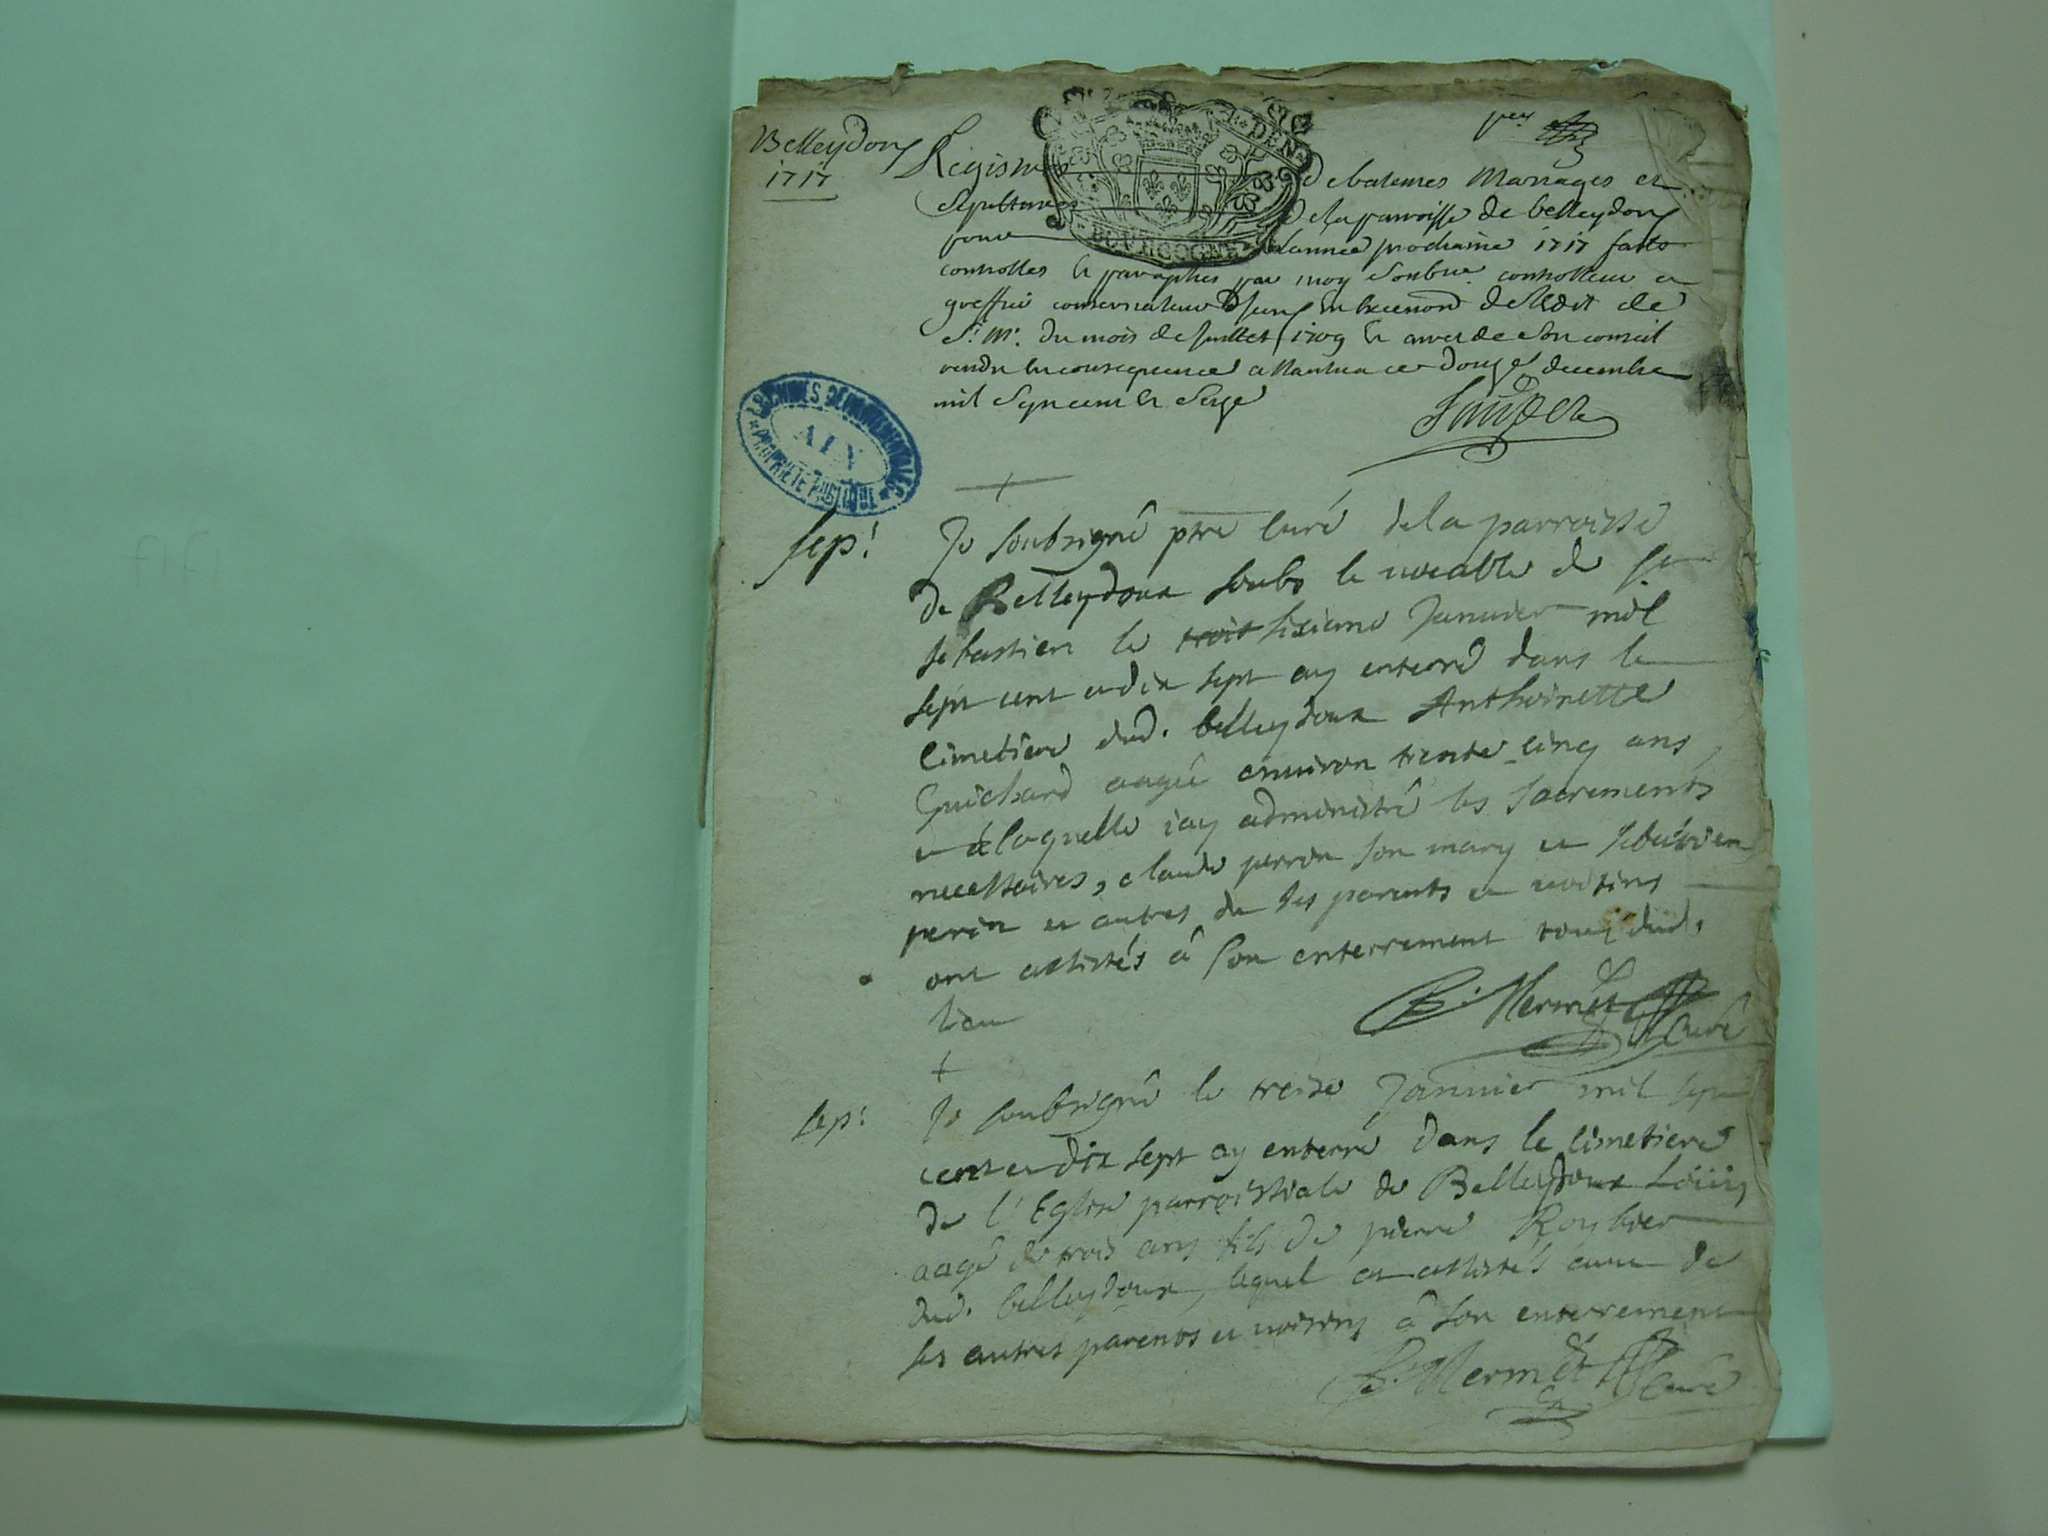 Belleydoux
1717
per
Registre de batemes Mariages et
sepultures de la parroisse de belleydoux
pour l'année prochaine 1717 fait
controllés et paraphés par moy soubné controlleur et
greffier conservateur en de l'edit de
S. M. du mois de Juillet 1709 et arret de son conseil
rendu en consequence a Nantua ce douze decembre
mil sept cent et seize
BOURGOGNE
ARCHIVES DÉPARTEMENTALES
AIN
PROPRIÉTÉ PUBLIQUE
sep!
Je soubsigné ptre curé de la parroisse
de Belleydoux soubs le vocable de st
sebastien le trois sixieme Janvier mil
sept cent et dix sept ay enterré dans le
cimetiere dud. belleydoux Anthoinette
Guichard aagée environ trente cinq ans
et à laquelle j'ay administré les sacrements
necessaires, claude perrin son mary et sebastien
perrin et autres de ses parents et voisins
ont assistés à son enterrement tous dud.
lieu
B. Hermet Curé
sep!
Je soubsigné le treize Janvier mil sept
cent et dix sept ay enterré dans le cimetiere
de l'Eglise parroissiale de Belleydoux Loüis
aagé de trois ans fils de pierre Roybier
dud. belleydoux, lequel at assistés avec de
ses autres parents et voisins à son enterrement
B. Hermet Curé